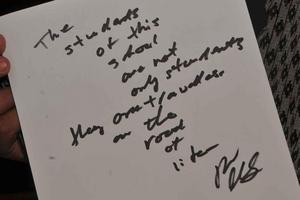 The
students
of this
shool
are not
only students
they are travellers
on the
road
of